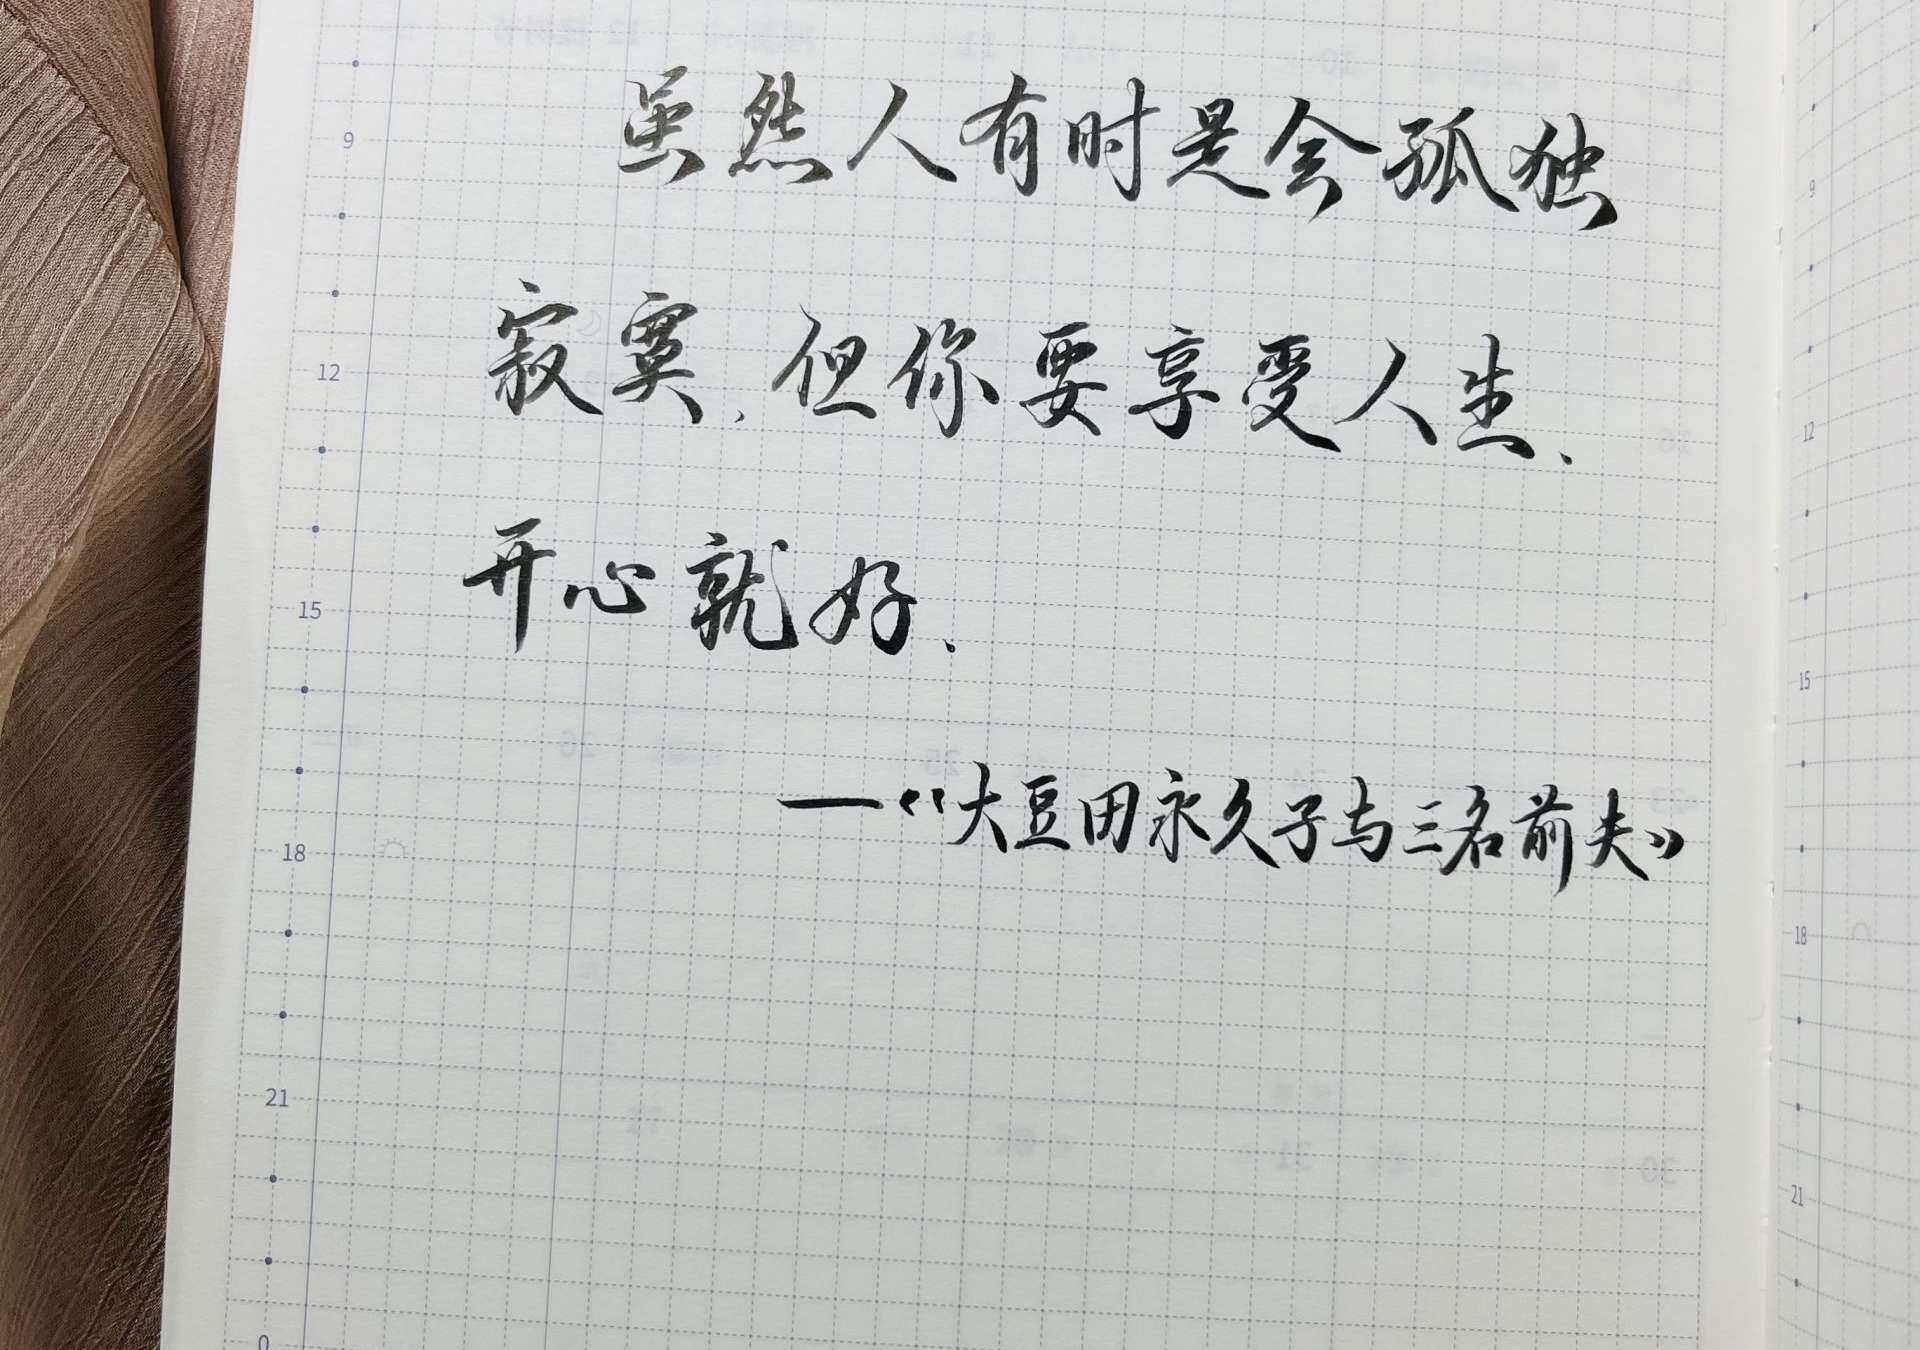 虽然人有时是会孤独
寂寞，但你要享受人生．
开心就好．
—《大豆田永久子与三名前夫》
9
12
15
18
21
0
9
12
15
18
21